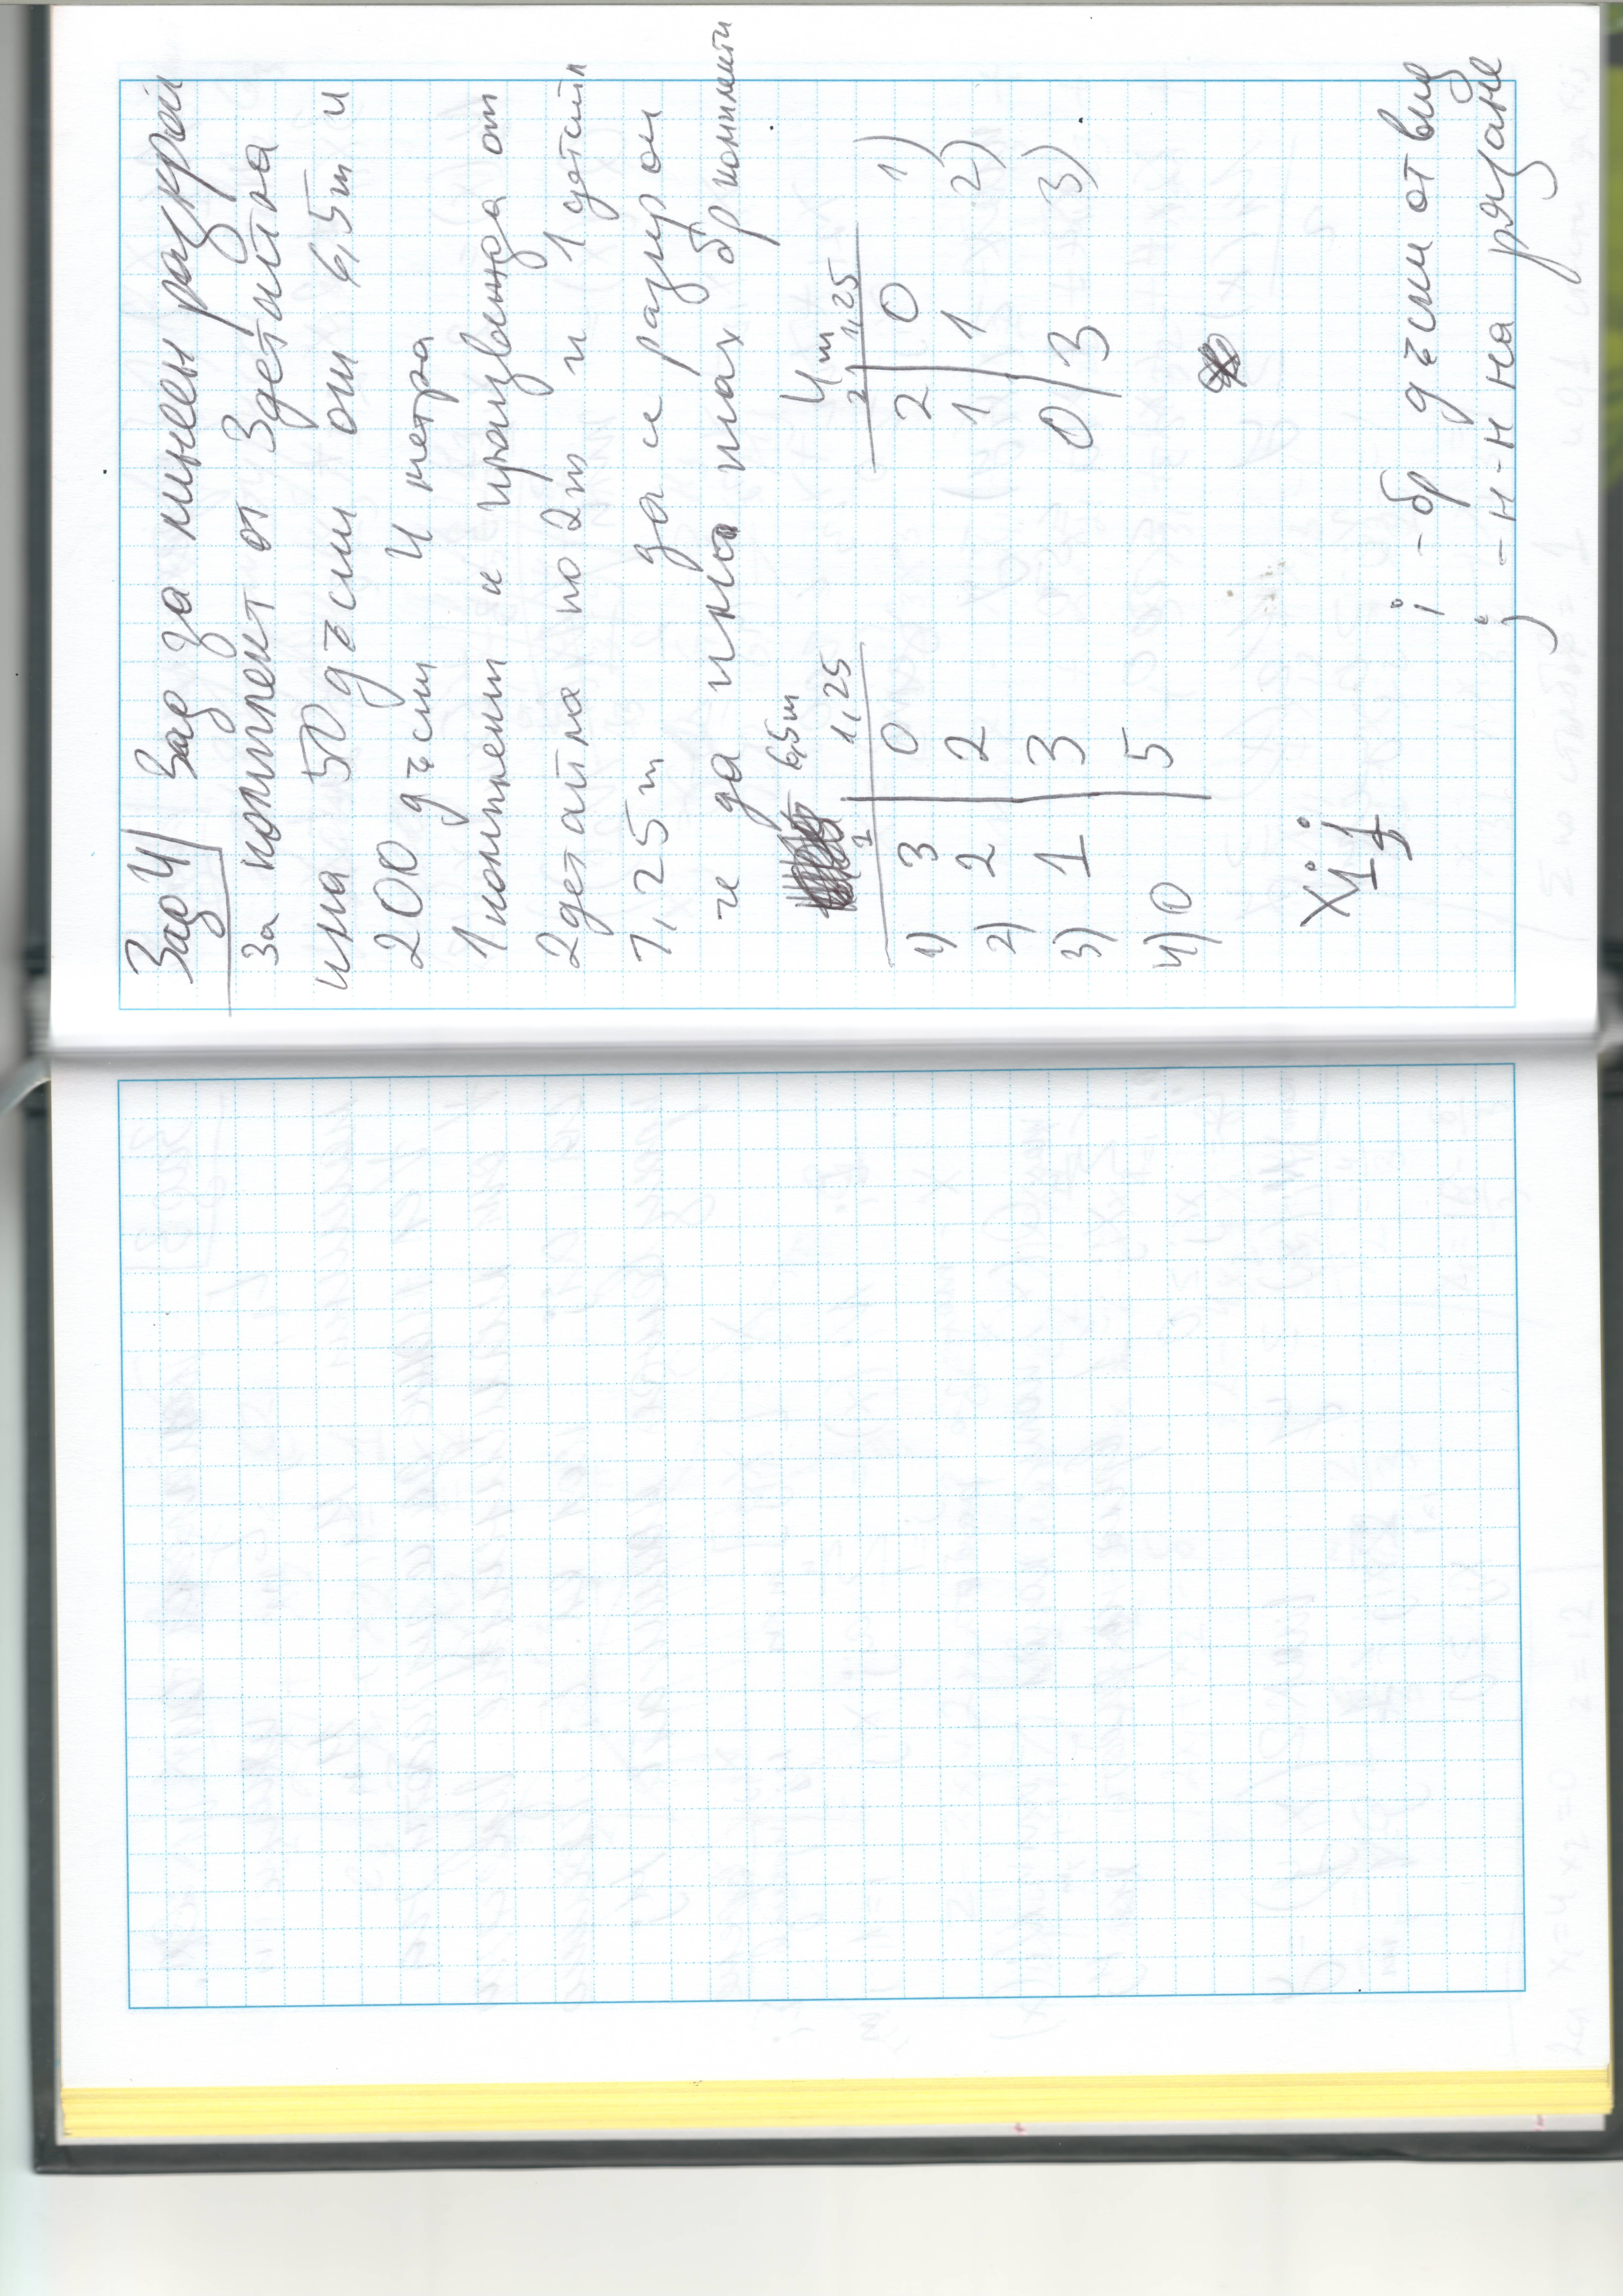 Зад 4| Зад за линеен разкрой
За комплект от 3 детайла
има 50 дъски они 6,5m и
200 дъски 4 метра
1 комплект се произвежда от
2 детайла по 2m и 1 детайл
1,25m да се разкрои
че да има max бр комплекти
6,5m 4m
2 1,25 2 1,25
1) 3 0 2 0 1)
2) 2 2 1 1 2)
3) 1 3 0 3 3)
4) 0 5
xij
11
i - бр дъски от вид
j - н-н на рязане